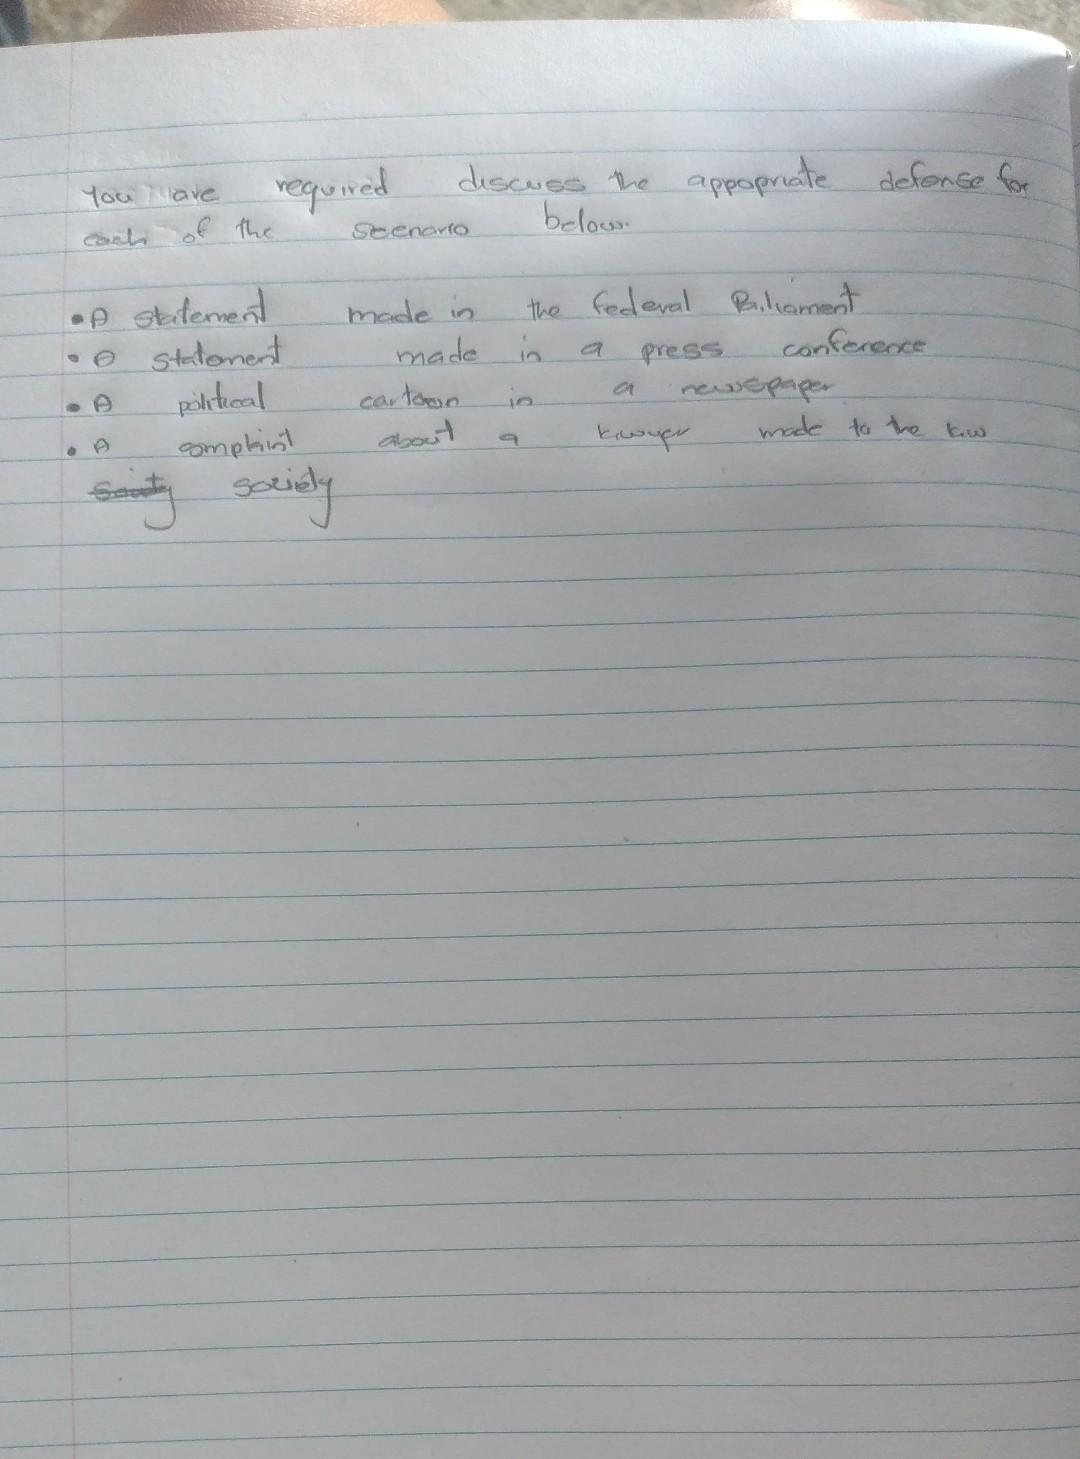 You are required discuss the appopriate defense for
each of the scenario below.
• A statement made in the federal Parliament
• A statement made in a press conference
• A political cartoon in a newspaper
• A complaint about a lawyer made to the law
society